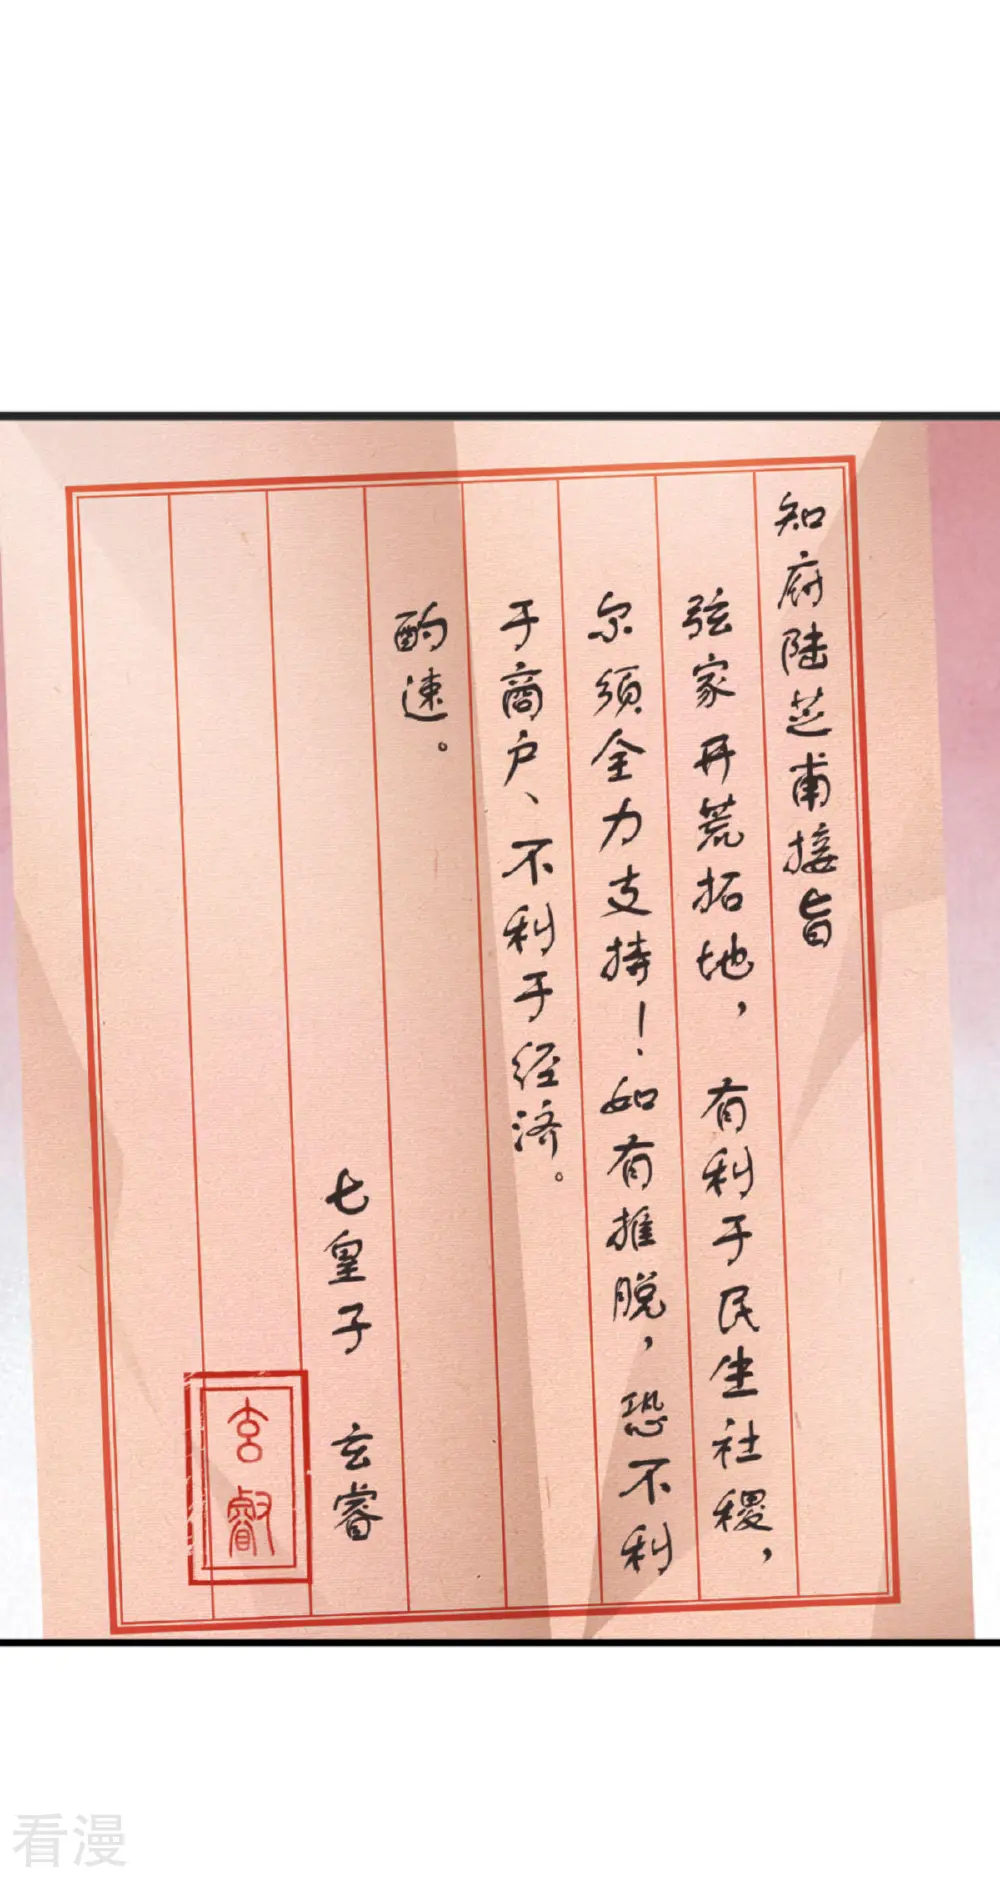 知府陆芝甫接旨
弦家开荒拓地，有利于民生社稷，
尔须全力支持！如有推脱，恐不利
于商户、不利于经济。
酌速。
七皇子 玄睿
玄叡
看漫